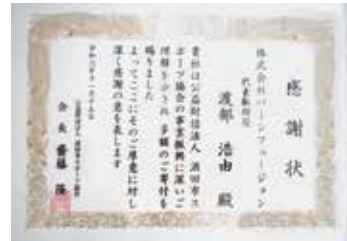 感謝状
株式会社バーンフュージョン
代表取締役
渡部 浩由 殿
貴社は公益財信法人 酒田市ス
ポーツ協会の事業振興に深いご
理解を示され 多額のご寄付を
賜りました
よってここにそのご厚意に対し
深く感謝の意を表します
会長 齋藤